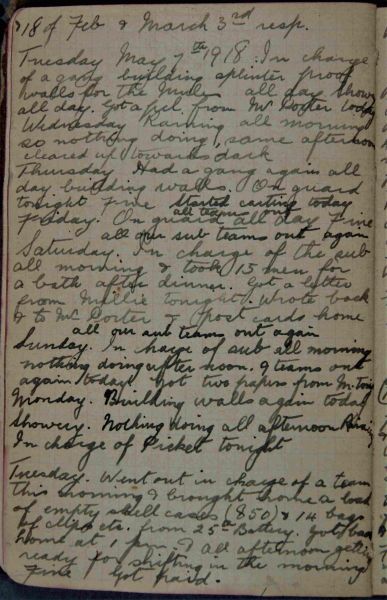 18 of Feb & March 3rd resp.
Tuesday May 7th 1918. In charge
of a gang building splinter proof
walls for the Mules all day Showery
all day. Got a from Mr Porter today
Wednesday Raining all morning
so nothing doing, same afternoon
cleared up towards dark
Thursday Had a gang again all
day building walls. On guard
tonight Fine Started carting today
all teams out
Friday. On guard all day Fine
all our sub teams out again
Saturday. In charge of the sub
all morning & took 15 men for
a bath after dinner. Got a letter
from Millie tonight. Wrote back
& to Mr Porter & post cards home
all our sub teams out again
Sunday. In charge of sub all morning
nothing doing after noon. 9 teams out
again today. Got two papers from
Monday. Building walls again today
Showery. Nothing doing all afternoon
In charge of Picket tonight
Tuesday. Went out in charge of a team
this morning & brought home a load
of empty shell cases (850) & 14 bags
of etc. from 25th Battery. Got back
home at 1 pm. & all afternoon getting
ready for shifting in the morning
Fine Got paid.